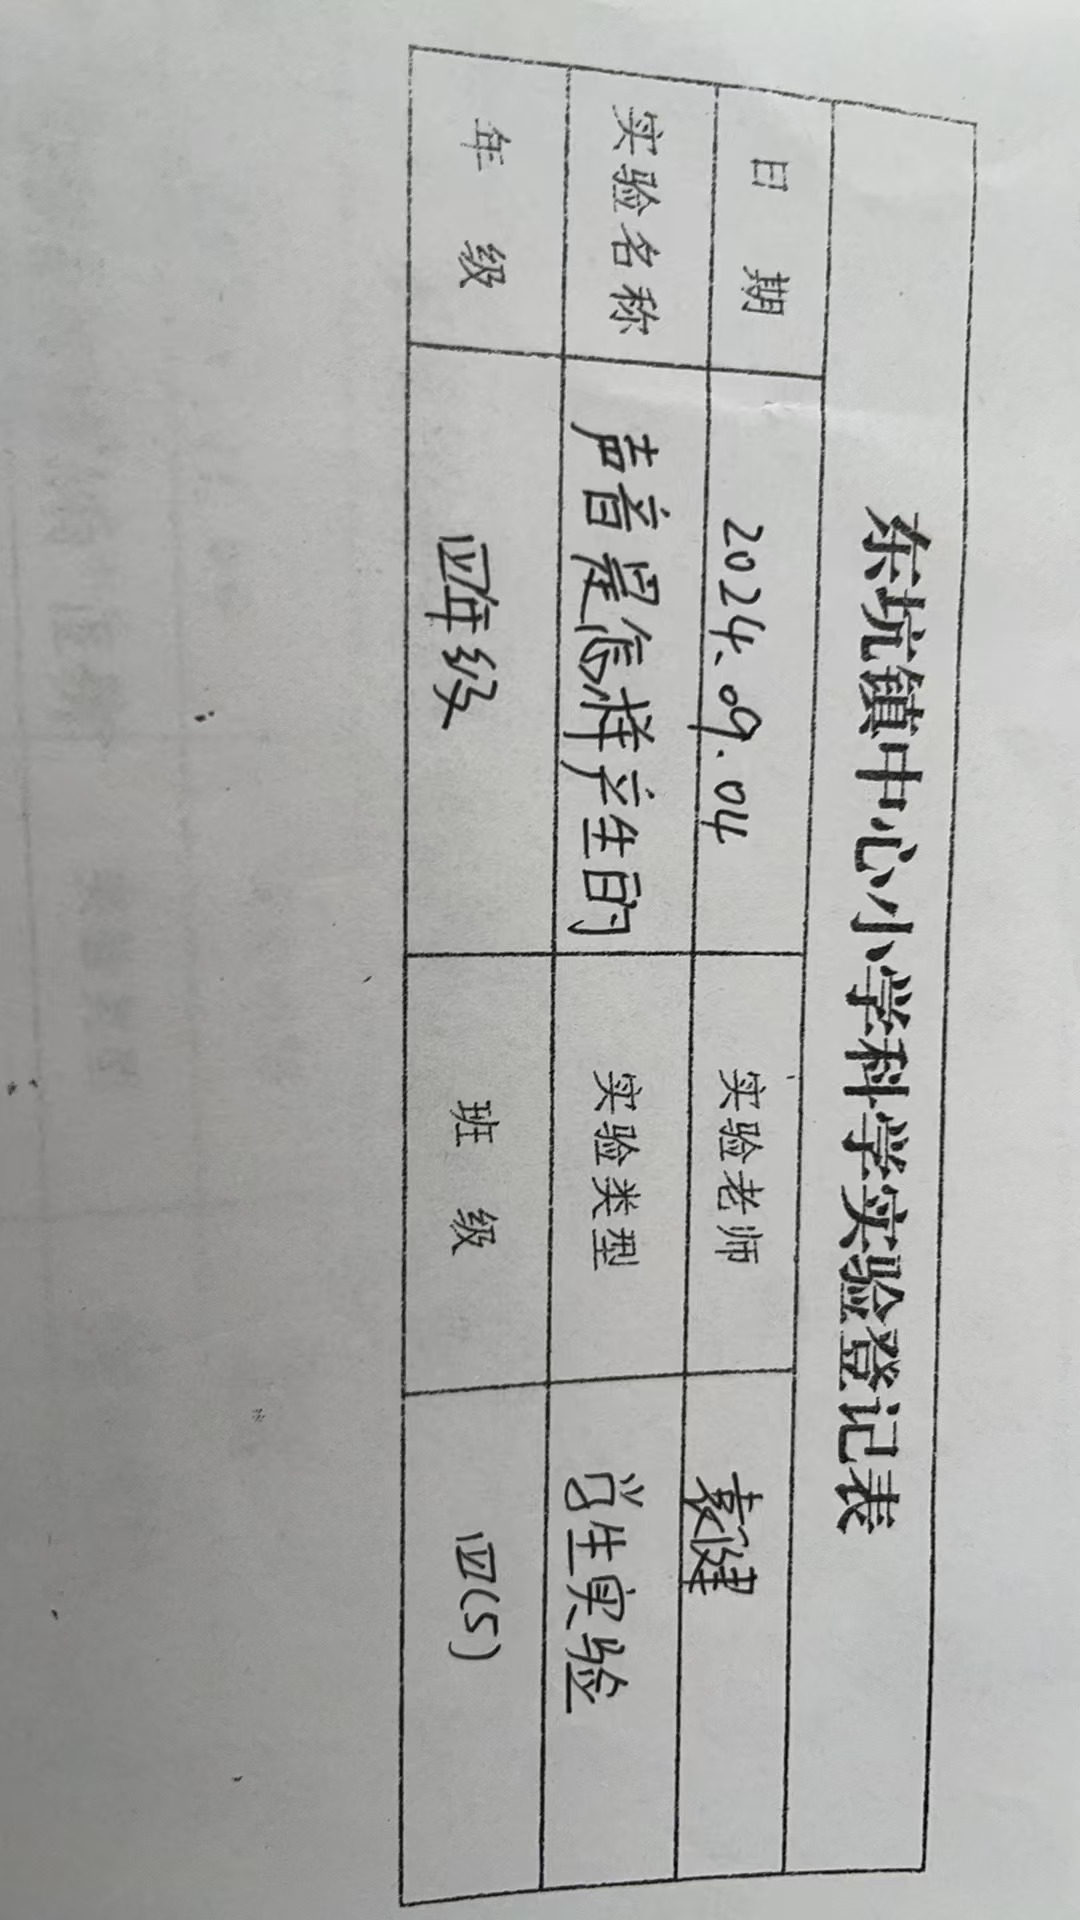 东坑镇中心小学科学实验登记表
日 期 2024.09.04 实验老师 袁健
实验名称 声音是怎样产生的 实验类型 学生实验
年 级 四年级 班 级 四(5)